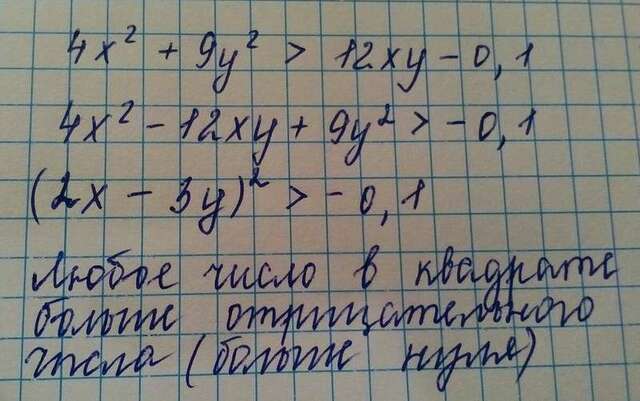 4x² + 9y² > 12xy - 0,1
4x² - 12xy + 9y² > - 0,1
(2x - 3y)² > - 0,1
Любое число в квадрате
больше отрицательного
числа (больше нуля)